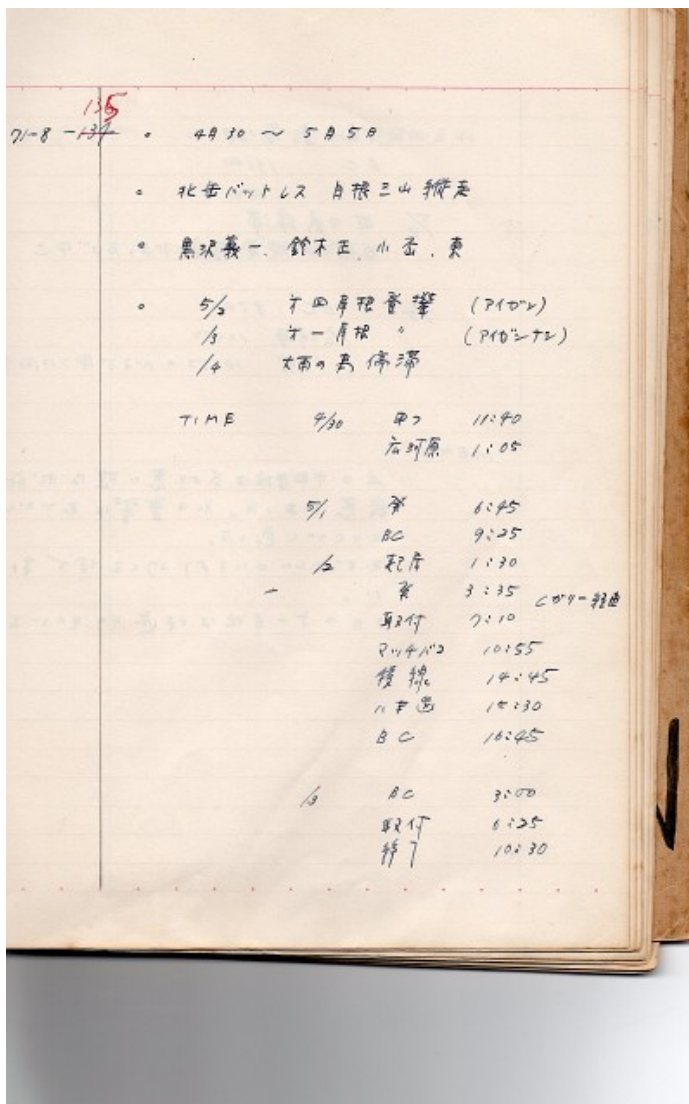 135
71-8-134 。 4月30 〜 5月5日
。 北岳バットレス 白根三山縦走
。 黒沢義一、鈴木正、小岙、東
。 5/2 オ四尾根登攀 (アイゼン)
/3 オ一尾根 〃 (アイゼンナシ)
/4 大雨の為停滞
TIME 4/30 甲フ 11:40
広河原 1:05
5/1 発 6:45
BC 9:25
/2 起床 1:30
発 3:35 Cガリー経由
取付 7:10
マッチバコ 10:55
稜線 14:45
八本歯 15:30
BC 16:45
/3 BC 3:00
取付 6:25
終了 10:30